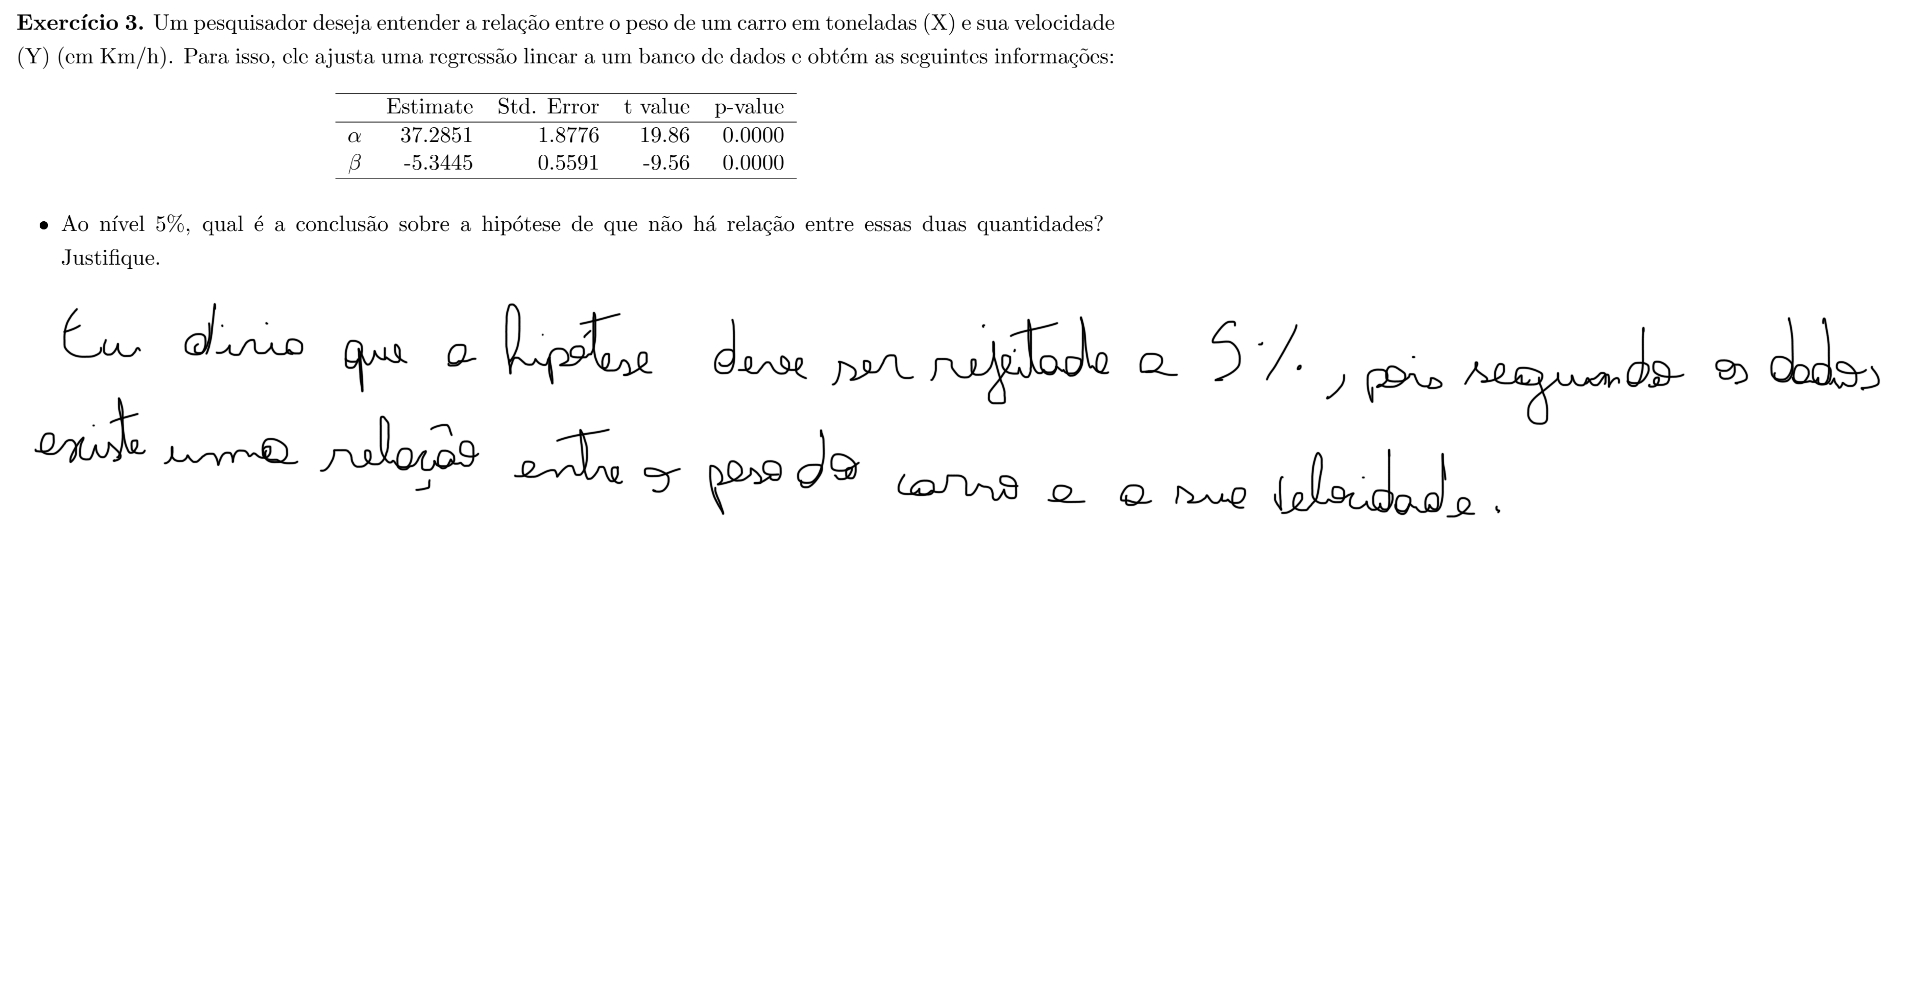 Exercício 3. Um pesquisador deseja entender a relação entre o peso de um carro em toneladas (X) e sua velocidade
(Y) (em Km/h). Para isso, ele ajusta uma regressão linear a um banco de dados e obtém as seguintes informações:
Estimate Std. Error t value p-value
α 37.2851 1.8776 19.86 0.0000
β -5.3445 0.5591 -9.56 0.0000
• Ao nível 5%, qual é a conclusão sobre a hipótese de que não há relação entre essas duas quantidades?
Justifique.
Eu diria que a hipótese deve ser rejeitada a 5%, pois segundo os dados
existe uma relação entre o peso do carro e a sua velocidade.